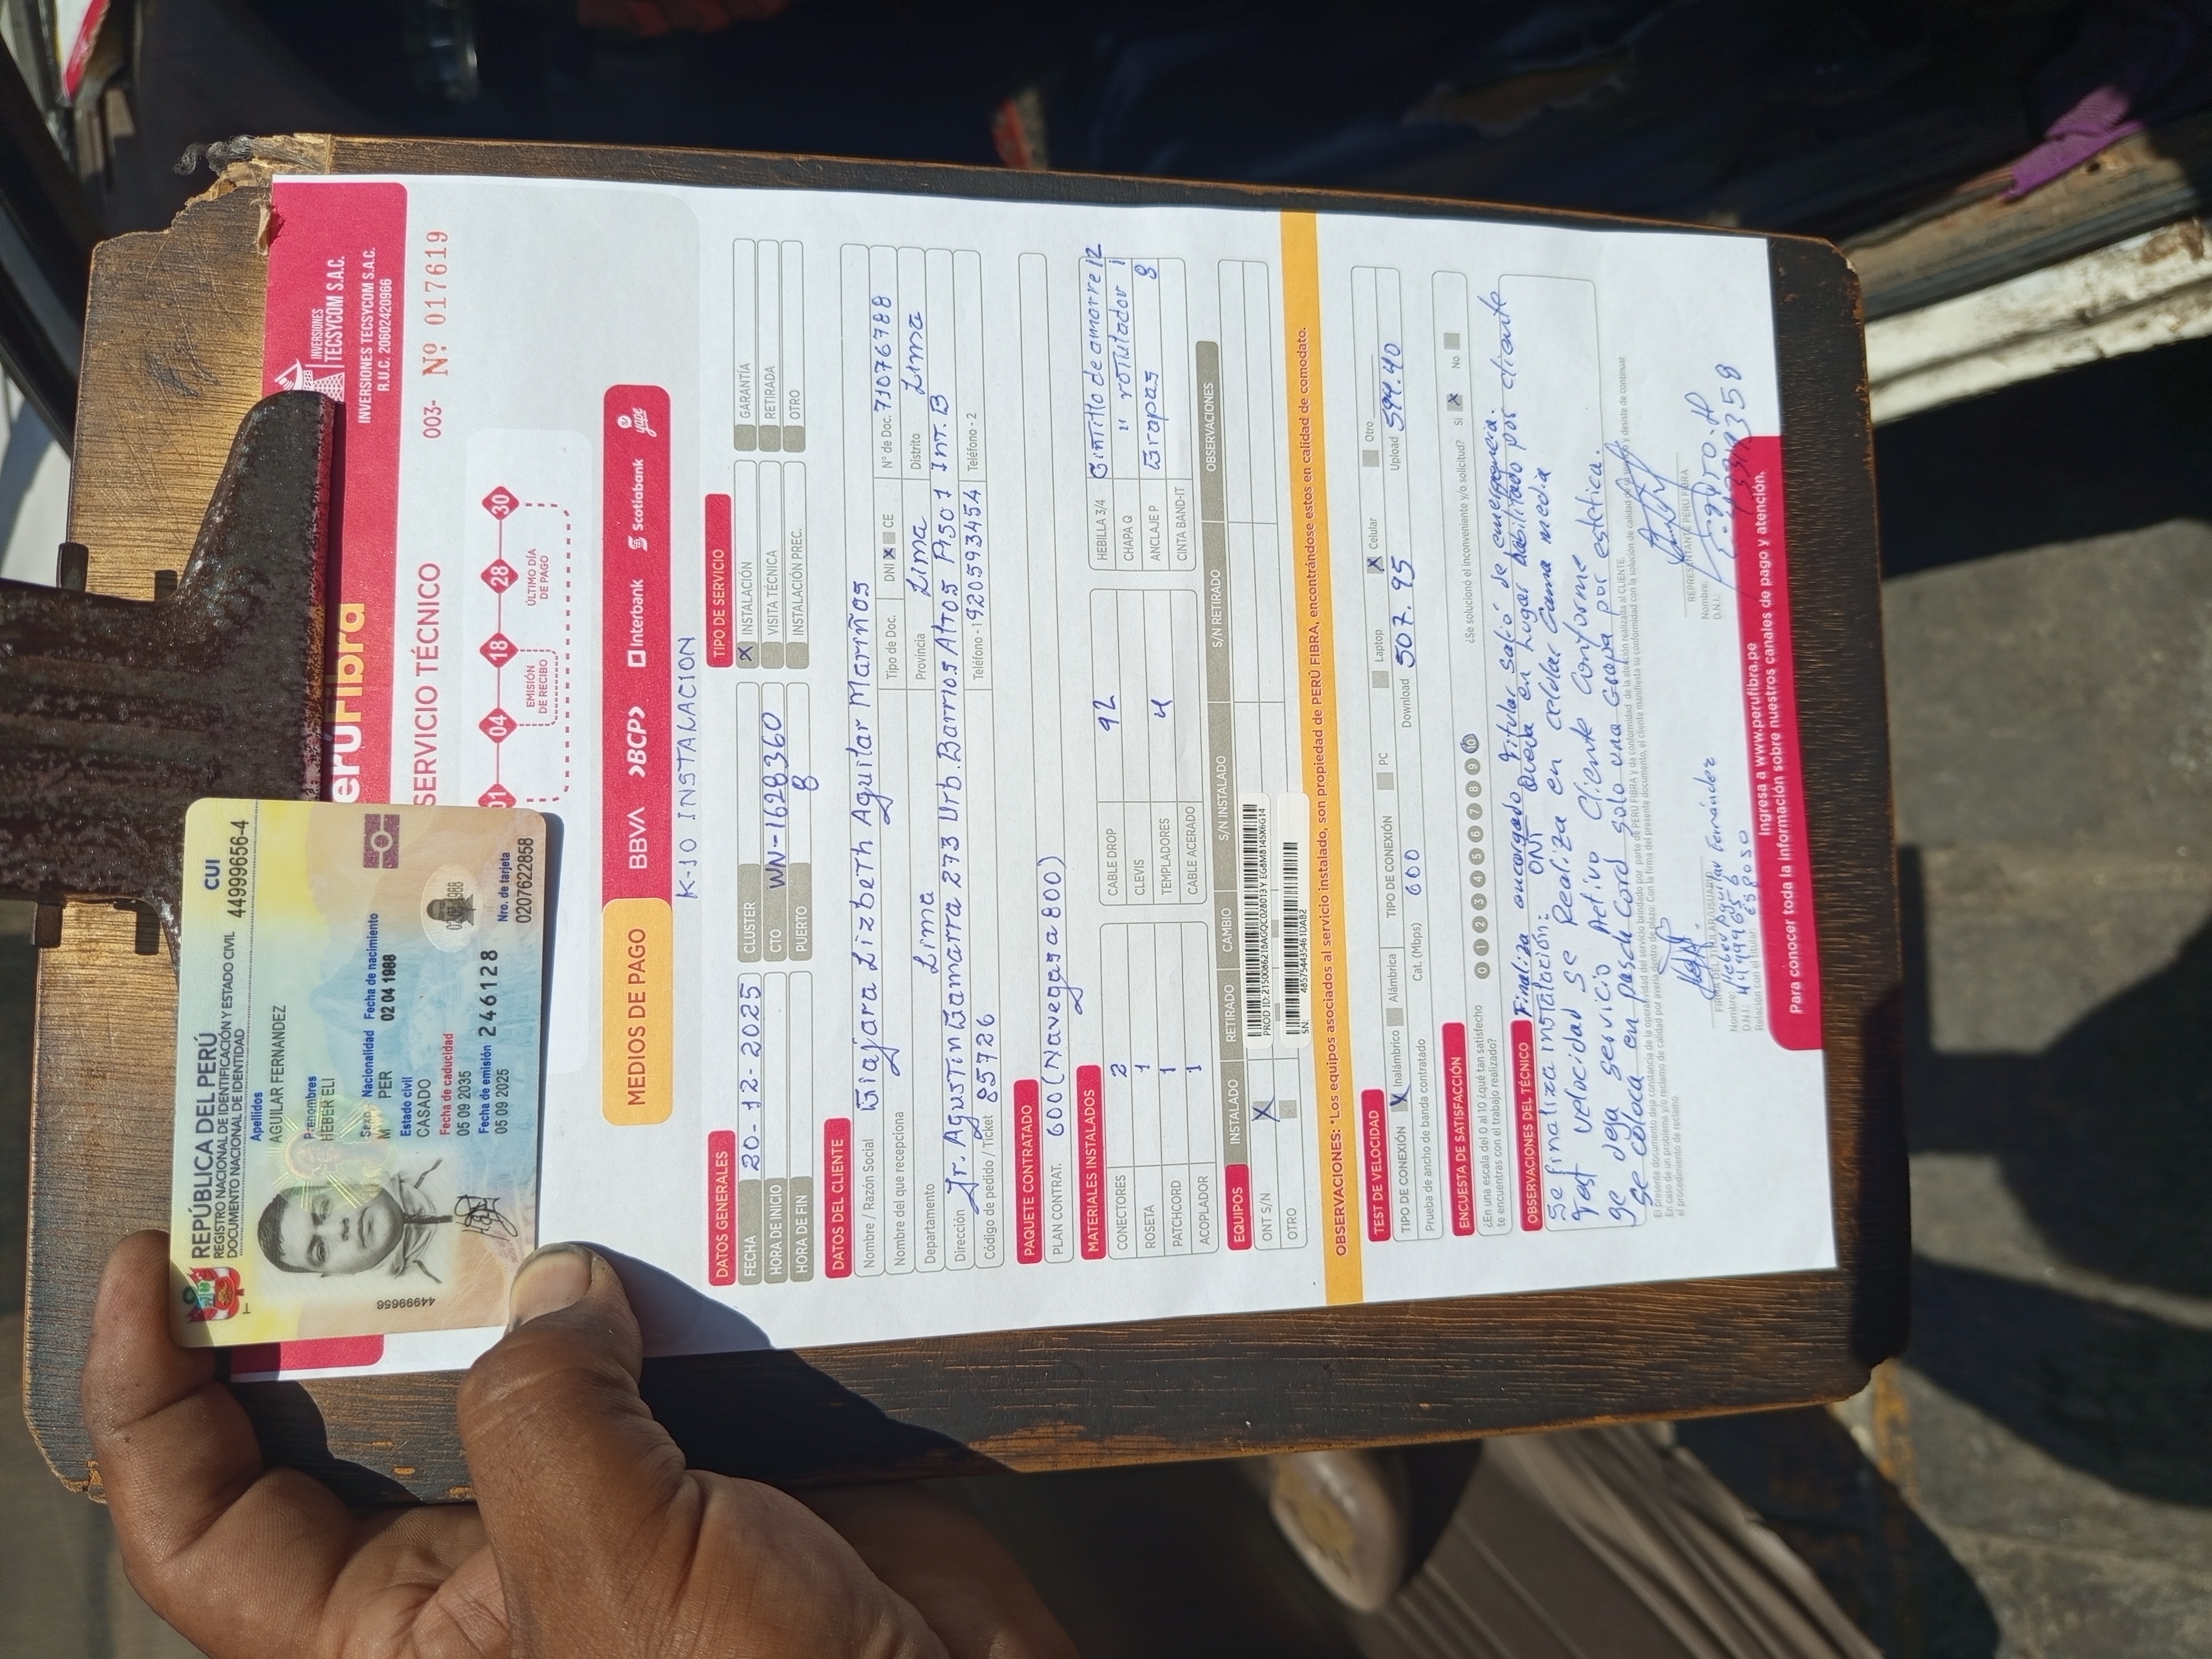 REPÚBLICA DEL PERÚ
REGISTRO NACIONAL DE IDENTIFICACIÓN Y ESTADO CIVIL
DOCUMENTO NACIONAL DE IDENTIDAD
CUI
44999656-4
Apellidos
AGUILAR FERNANDEZ
Prenombres
HEBER ELI
Sexo Nacionalidad Fecha de nacimiento
M PER 02 04 1988
Estado civil
CASADO
Fecha de caducidad
05 09 2035
Fecha de emisión 246128
05 09 2025
Nro. de tarjeta
0207622858
44999656
erúFibra
INVERSIONES
TECSYCOM S.A.C.
INVERSIONES TECSYCOM S.A.C.
R.U.C. 20602420966
SERVICIO TÉCNICO
003- Nº 017619
01 04 18 28 30
EMISIÓN DE RECIBO
ÚLTIMO DÍA DE PAGO
MEDIOS DE PAGO
BBVA BCP Interbank Scotiabank yape
K-10 INSTALACION
DATOS GENERALES
TIPO DE SERVICIO
FECHA 20-12-2025
CLUSTER
X INSTALACIÓN
GARANTÍA
HORA DE INICIO
CTO WN-1628360
VISITA TÉCNICA
RETIRADA
HORA DE FIN
PUERTO 8
INSTALACIÓN PREC.
OTRO
DATOS DEL CLIENTE
Nombre / Razón Social Giajara Lizbeth Aguilar Mariños
Nombre del que recepciona
Tipo de Doc. DNI X CE
Nº de Doc. 71076788
Departamento Lima
Provincia Lima
Distrito Lima
Dirección Jr. Agustin Gamarra 273 Urb. Barrios Altos Piso 1 Int. B
Código de pedido / Ticket 85726
Teléfono - 1 920593454
Teléfono - 2
PAQUETE CONTRATADO
PLAN CONTRAT. 600 (Navegar a 800)
MATERIALES INSTALADOS
CONECTORES 2 CABLE DROP 92 HEBILLA 3/4 Cintillo de amarre 12
ROSETA 1 CLEVIS CHAPA Q " rotulador 1
PATCHCORD 1 TEMPLADORES 4 ANCLAJE P Grapas 8
ACOPLADOR 1 CABLE ACERADO CINTA BAND-IT
EQUIPOS INSTALADO RETIRADO CAMBIO S/N INSTALADO S/N RETIRADO OBSERVACIONES
ONT S/N X
OTRO
SN: 485754435461DAB2
OBSERVACIONES: *Los equipos asociados al servicio instalado, son propiedad de PERÚ FIBRA, encontrándose estos en calidad de comodato.
TEST DE VELOCIDAD
TIPO DE CONEXIÓN X Inalámbrico Alámbrica TIPO DE CONEXIÓN PC Laptop X Celular Otro
Prueba de ancho de banda contratado Cat. (Mbps) 600 Download 507.95 Upload 594.40
ENCUESTA DE SATISFACCIÓN
¿En una escala del 0 al 10 ¿qué tan satisfecho
te encuentras con el trabajo realizado?
0 1 2 3 4 5 6 7 8 9 10
¿Se solucionó el inconveniente y/o solicitud? Sí X No
OBSERVACIONES DEL TÉCNICO
Finaliza encargado titular salió de emergencia.
Se finaliza instalación: ONT queda en lugar habilitado por cliente
Test velocidad se Realiza en celular Gama media
se deja servicio Activo Cliente Conforme
se coloca en pasch Cord solo una Grapa por estética.
FIRMA DEL TITULAR/USUARIO
Nombre: Heber Aguilar Fernández
D.N.I.: 44999656
Relación con el titular: esposo
REPRESENTANTE PERU FIBRA
Nombre:
D.N.I.:
Ingresa a www.perufibra.pe
Para conocer toda la información sobre nuestros canales de pago y atención.